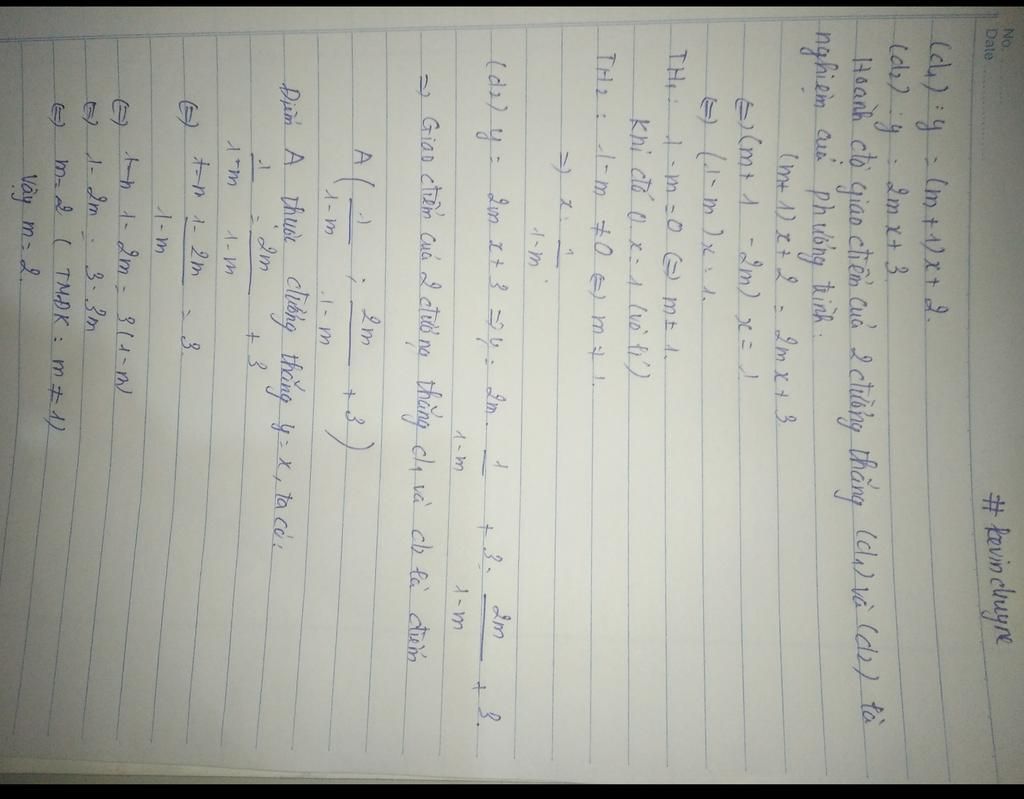 No.
Date
#kevinchuyne
(d₁) : y = (m+1)x + 2.
(d₂) : y = 2mx + 3
Hoành độ giao điểm của 2 đường thẳng (d₁) và (d₂) là
nghiệm của phương trình.
(m+1)x + 2 = 2mx + 3
⇔ (m+1 - 2m) x = 1
⇔ (1-m)x = 1.
TH₁ : 1-m = 0 ⇔ m = 1.
Khi đó 0x = 1 (vô lí)
TH₂ : 1-m ≠ 0 ⇔ m ≠ 1.
⇒ x = 1/(1-m).
(d₂) y = 2mx + 3 ⇒ y = 2m. 1/(1-m) + 3 = 2m/(1-m) + 3.
⇒ Giao điểm của 2 đường thẳng d₁ và d₂ là điểm
A ( 1/(1-m) ; 2m/(1-m) + 3 )
Điểm A thuộc đường thẳng y = x, ta có:
1/(1-m) = 2m/(1-m) + 3
⇔ (1-2m)/(1-m) = 3
⇔ 1-2m = 3(1-m)
⇔ 1-2m = 3-3m
⇔ m=2 ( TMĐK : m ≠ 1)
Vậy m=2.